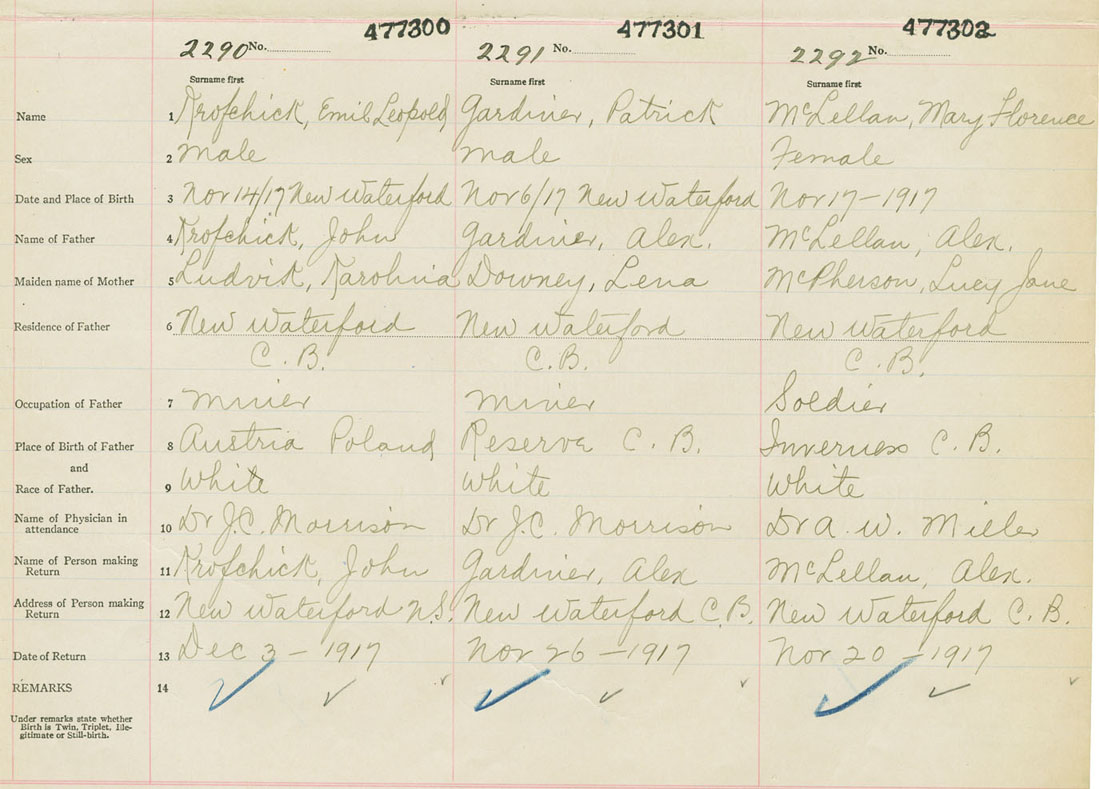 477300 477301 477302
2290 No. 2291 No. 2292 No.
Surname first Surname first Surname first
Name 1 Krofchick, Emil Leopold Gardiner, Patrick McLellan, Mary Florence
Sex 2 male male Female
Date and Place of Birth 3 Nov 14/17 New Waterford Nov 6/17 New Waterford Nov 17-1917
Name of Father 4 Krofchick, John Gardiner, Alex. McLellan, Alex.
Maiden name of Mother 5 Ludvik, Karolina Downey, Lena McPherson, Lucy Jane
Residence of Father 6 New Waterford New Waterford New Waterford
C. B. C. B. C. B.
Occupation of Father 7 miner miner Soldier
Place of Birth of Father 8 Austria Poland Reserve C. B. Inverness C. B.
and
Race of Father. 9 White White White
Name of Physician in
attendance 10 Dr J.C. Morrison Dr J.C. Morrison Dr A. W. Miller
Name of Person making
Return 11 Krofchick, John Gardiner, Alex McLellan, Alex.
Address of Person making
Return 12 New Waterford N.S. New Waterford C. B. New Waterford C. B.
Date of Return 13 Dec 3-1917 Nov 26-1917 Nov 20-1917
REMARKS 14
Under remarks state whether
Birth is Twin, Triplet, Ille-
gitimate or Still-birth.